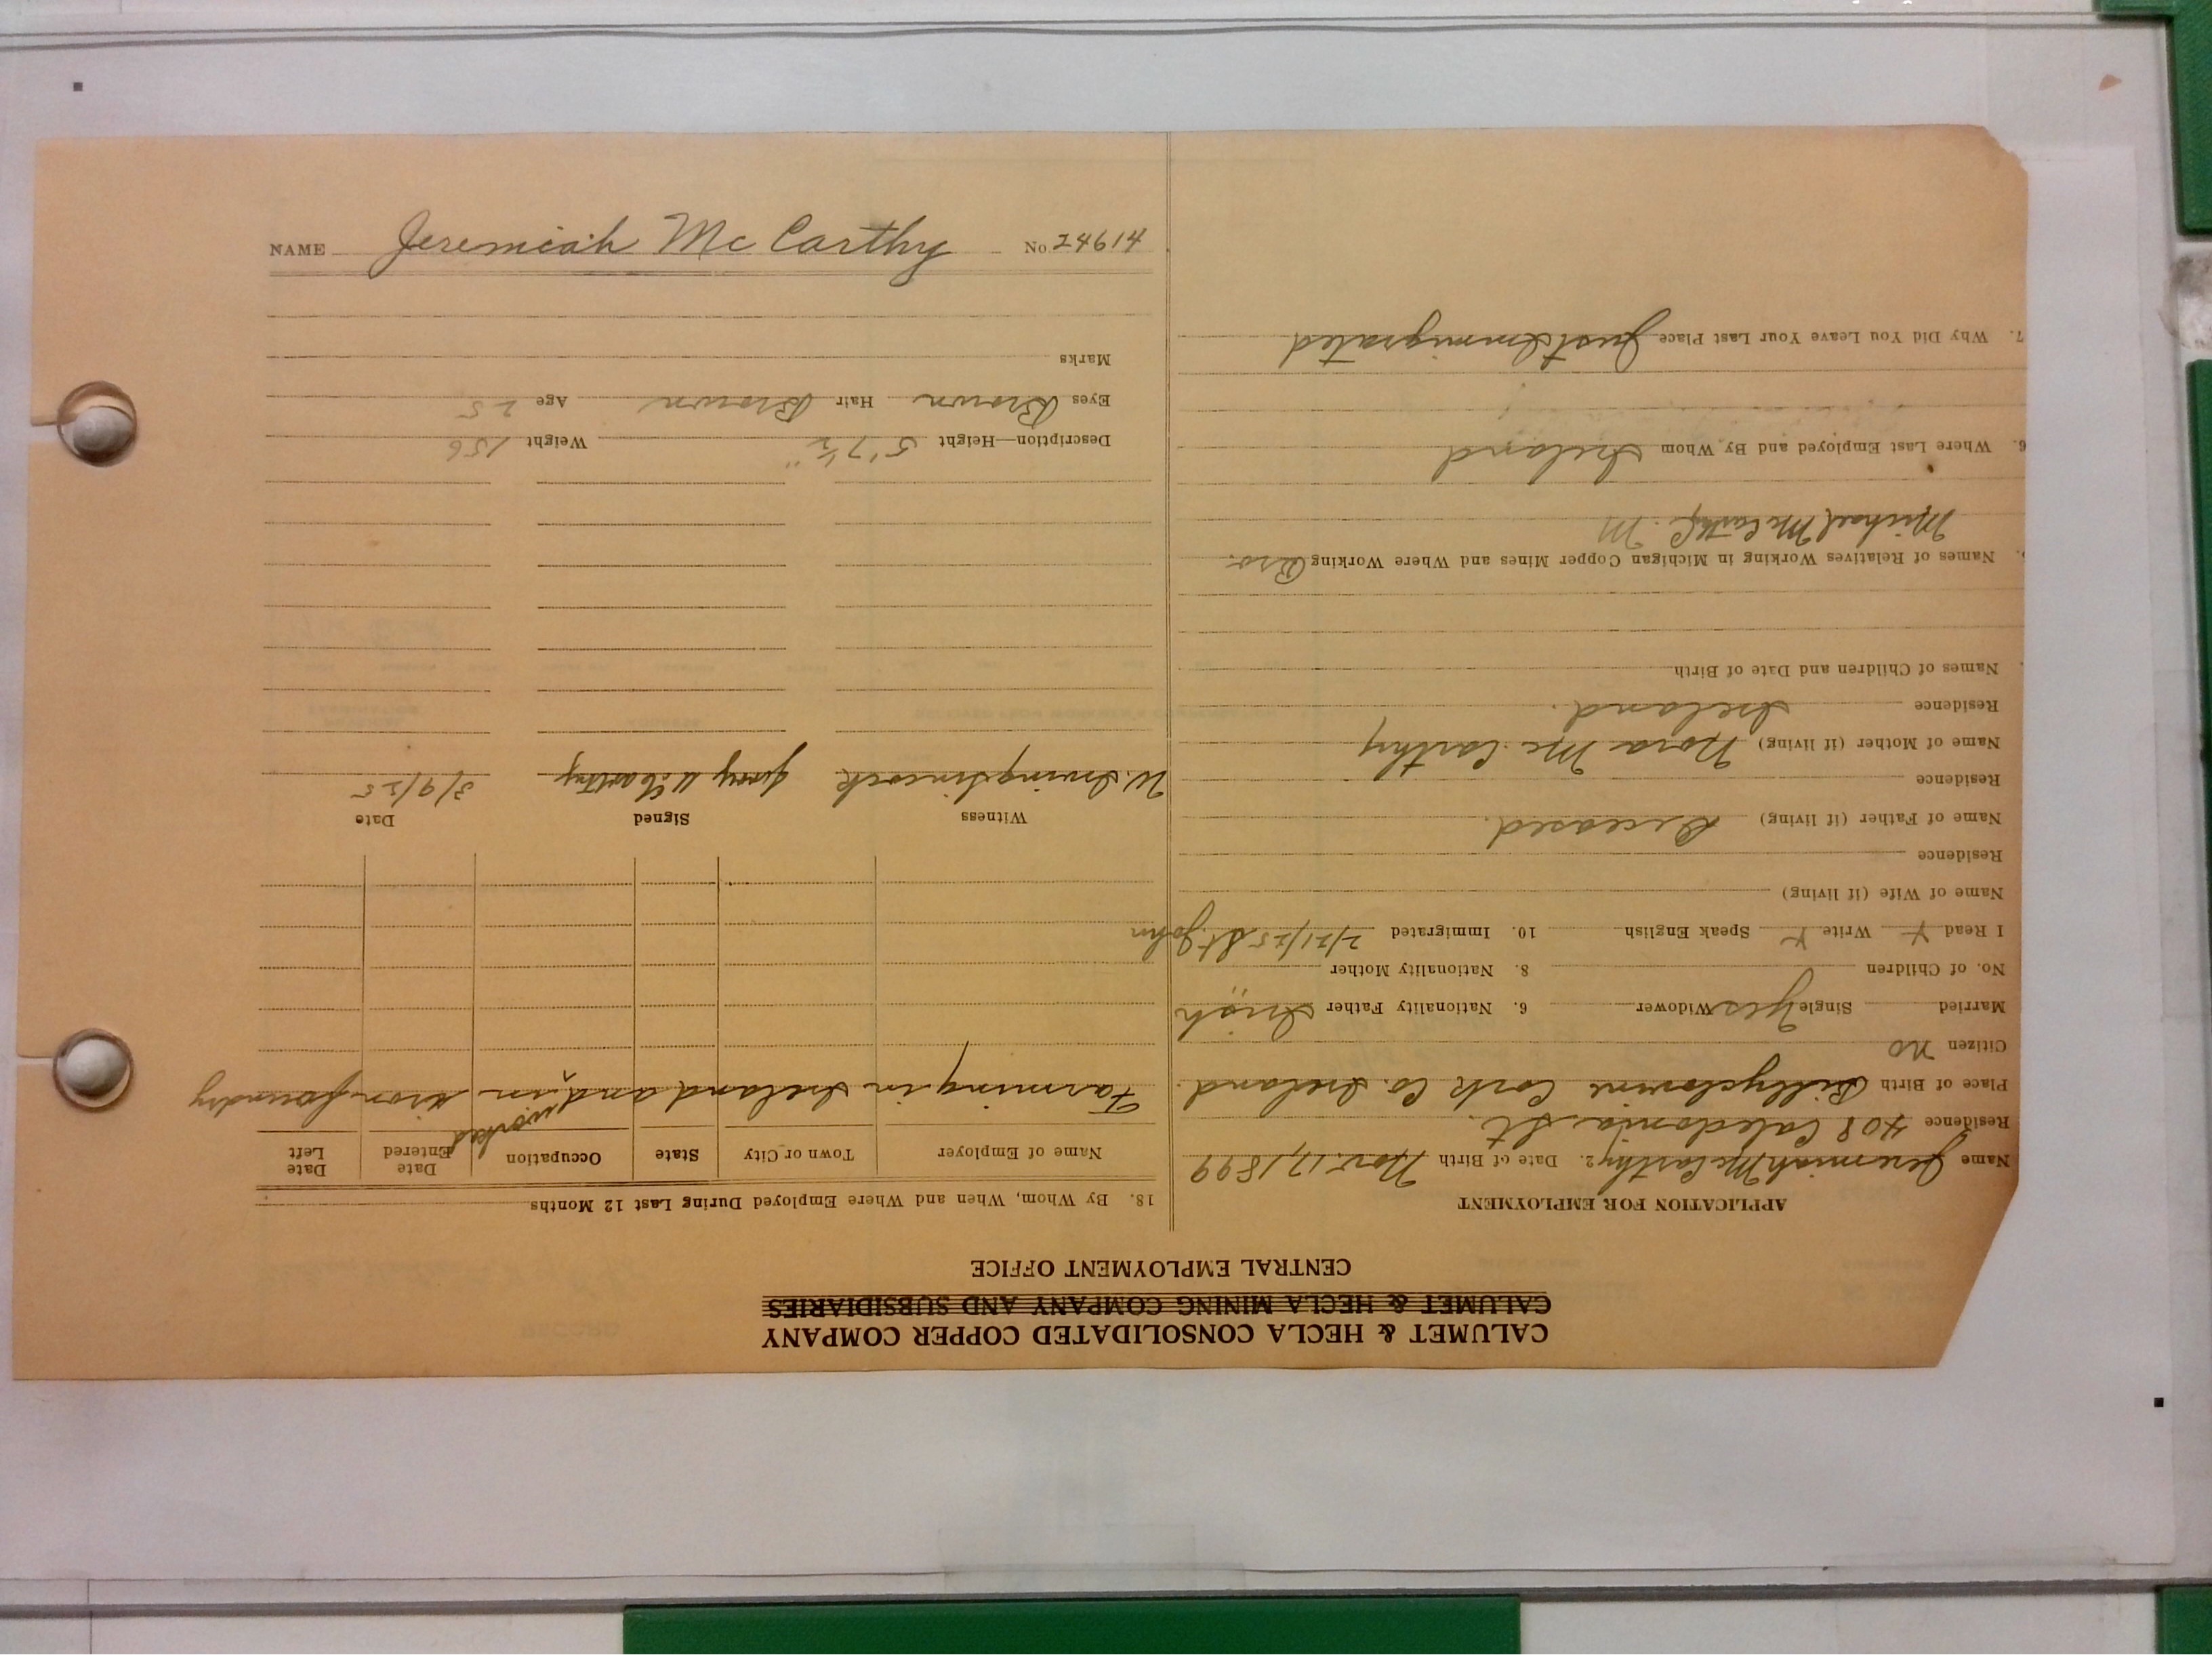 NAME Jeremiah McCarthy No. 24614
CALUMET & HECLA CONSOLIDATED COPPER COMPANY
CALUMET & HECLA MINING COMPANY AND SUBSIDIARIES
CENTRAL EMPLOYMENT OFFICE
APPLICATION FOR EMPLOYMENT
Name Jeremiah McCarthy 2. Date of Birth Nov. 17, 1899
Residence 408 Caledonia St.
Place of Birth Cork Co. Ireland.
Citizen no
Married Single Yes Widower 6. Nationality Father Irish
No. of Children 8. Nationality Mother
I Read Y Write Y Speak English 10. Immigrated 2/21/25 St. John
Name of Wife (if living)
Residence
Name of Father (if living) Deceased.
Residence
Name of Mother (if living) Nora McCarthy
Residence Ireland.
Names of Children and Date of Birth
Names of Relatives Working in Michigan Copper Mines and Where Working Bro.
Michael McCarthy. M
6. Where Last Employed and By Whom Ireland
7. Why Did You Leave Your Last Place Just Immigrated
18. By Whom, When and Where Employed During Last 12 Months
Name of Employer Town or City State Occupation Date Entered Date Left
worked
Farming in Ireland and in iron foundry
Witness Signed Date
W. Irving Jerry McCarthy 3/9/25
Description—Height 5' 7½" Weight 156
Eyes Brown Hair Brown Age 25
Marks